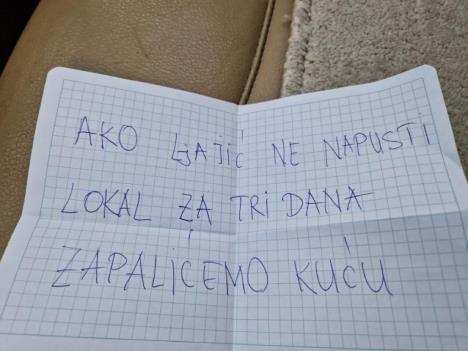 AKO LjAJIĆ NE NAPUSTI
LOKAL ZA TRI DANA
ZAPALIĆEMO KUĆU